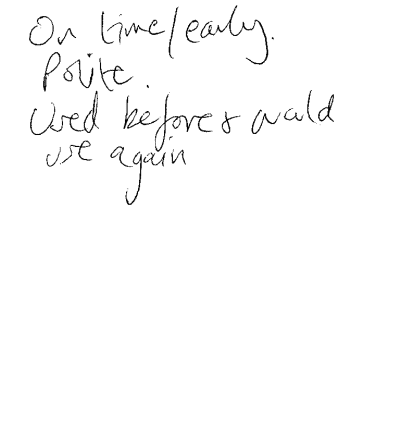 On time/early.
Polite.
Used before & would
use again